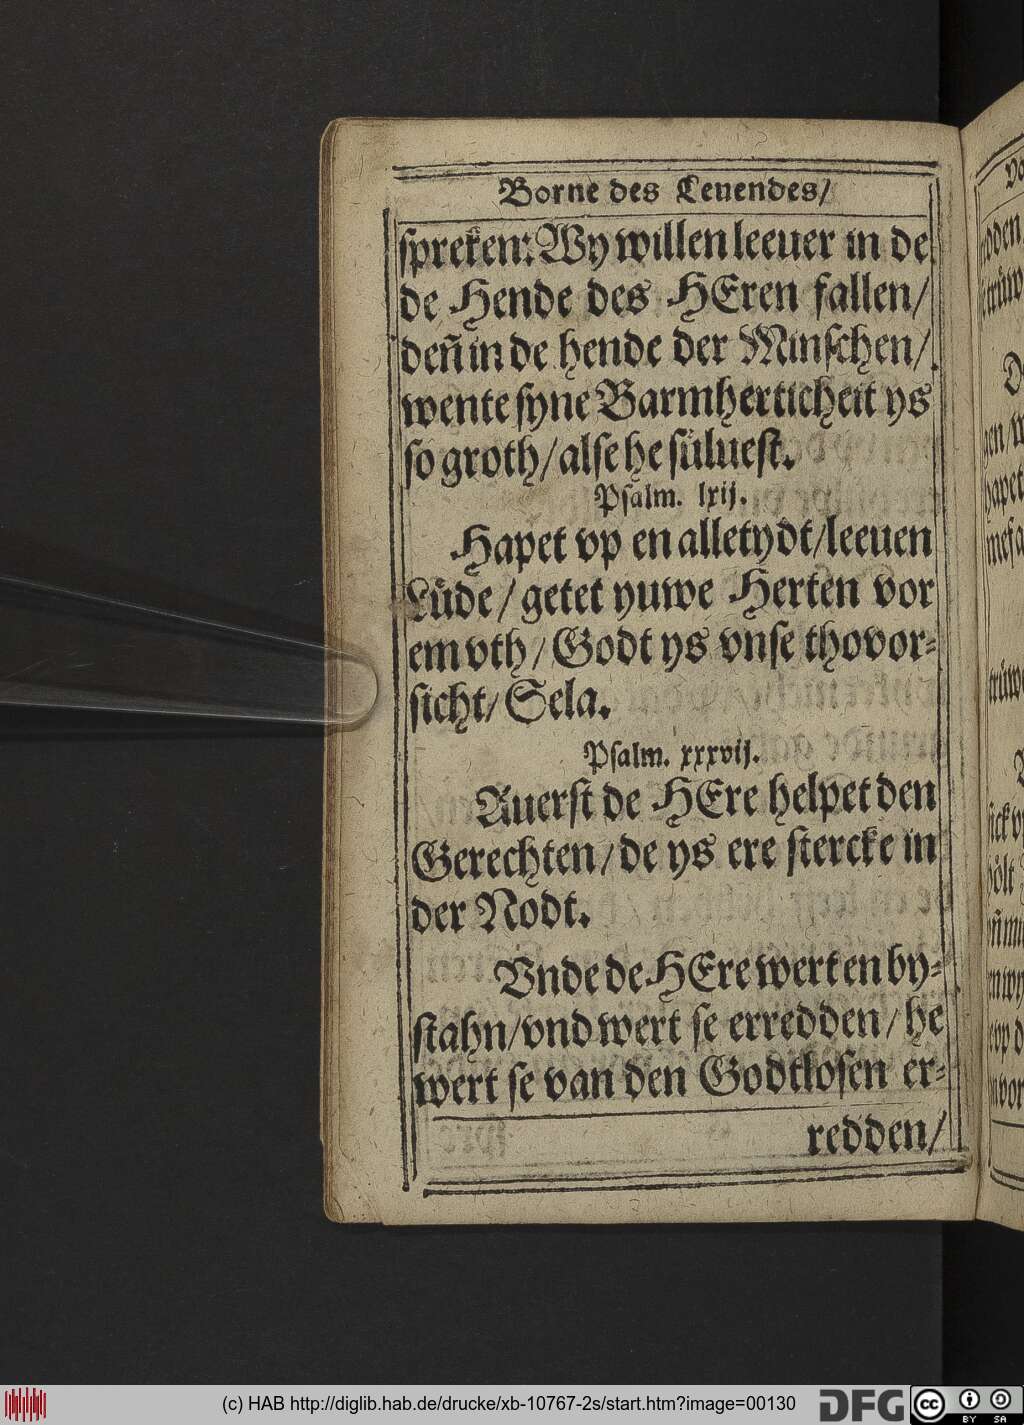 Borne des Leuendes/
spreken: Wy willen leeuer in de
de Hende des HEren fallen/
deñ in de hende der Minschen/
wente syne Barmherticheit ys
so groth/ alse he süluest.
Psalm. lxij.
Hapet vp en alletydt/ leeuen
Lüde/ getet yuwe Herten vor
em vth/ Godt ys vnse thovor⸗
sicht/ Sela.
Psalm. xxxvij.
Auerst de HEre helpet den
Gerechten/ de ys ere stercke in
der Nodt.
Vnde de HEre wert en by⸗
stahn/ vnd wert se erredden/ he
wert se van den Godtlosen er⸗
redden/
(c) HAB http://diglib.hab.de/drucke/xb-10767-2s/start.htm?image=00130
DFG
cc BY SA